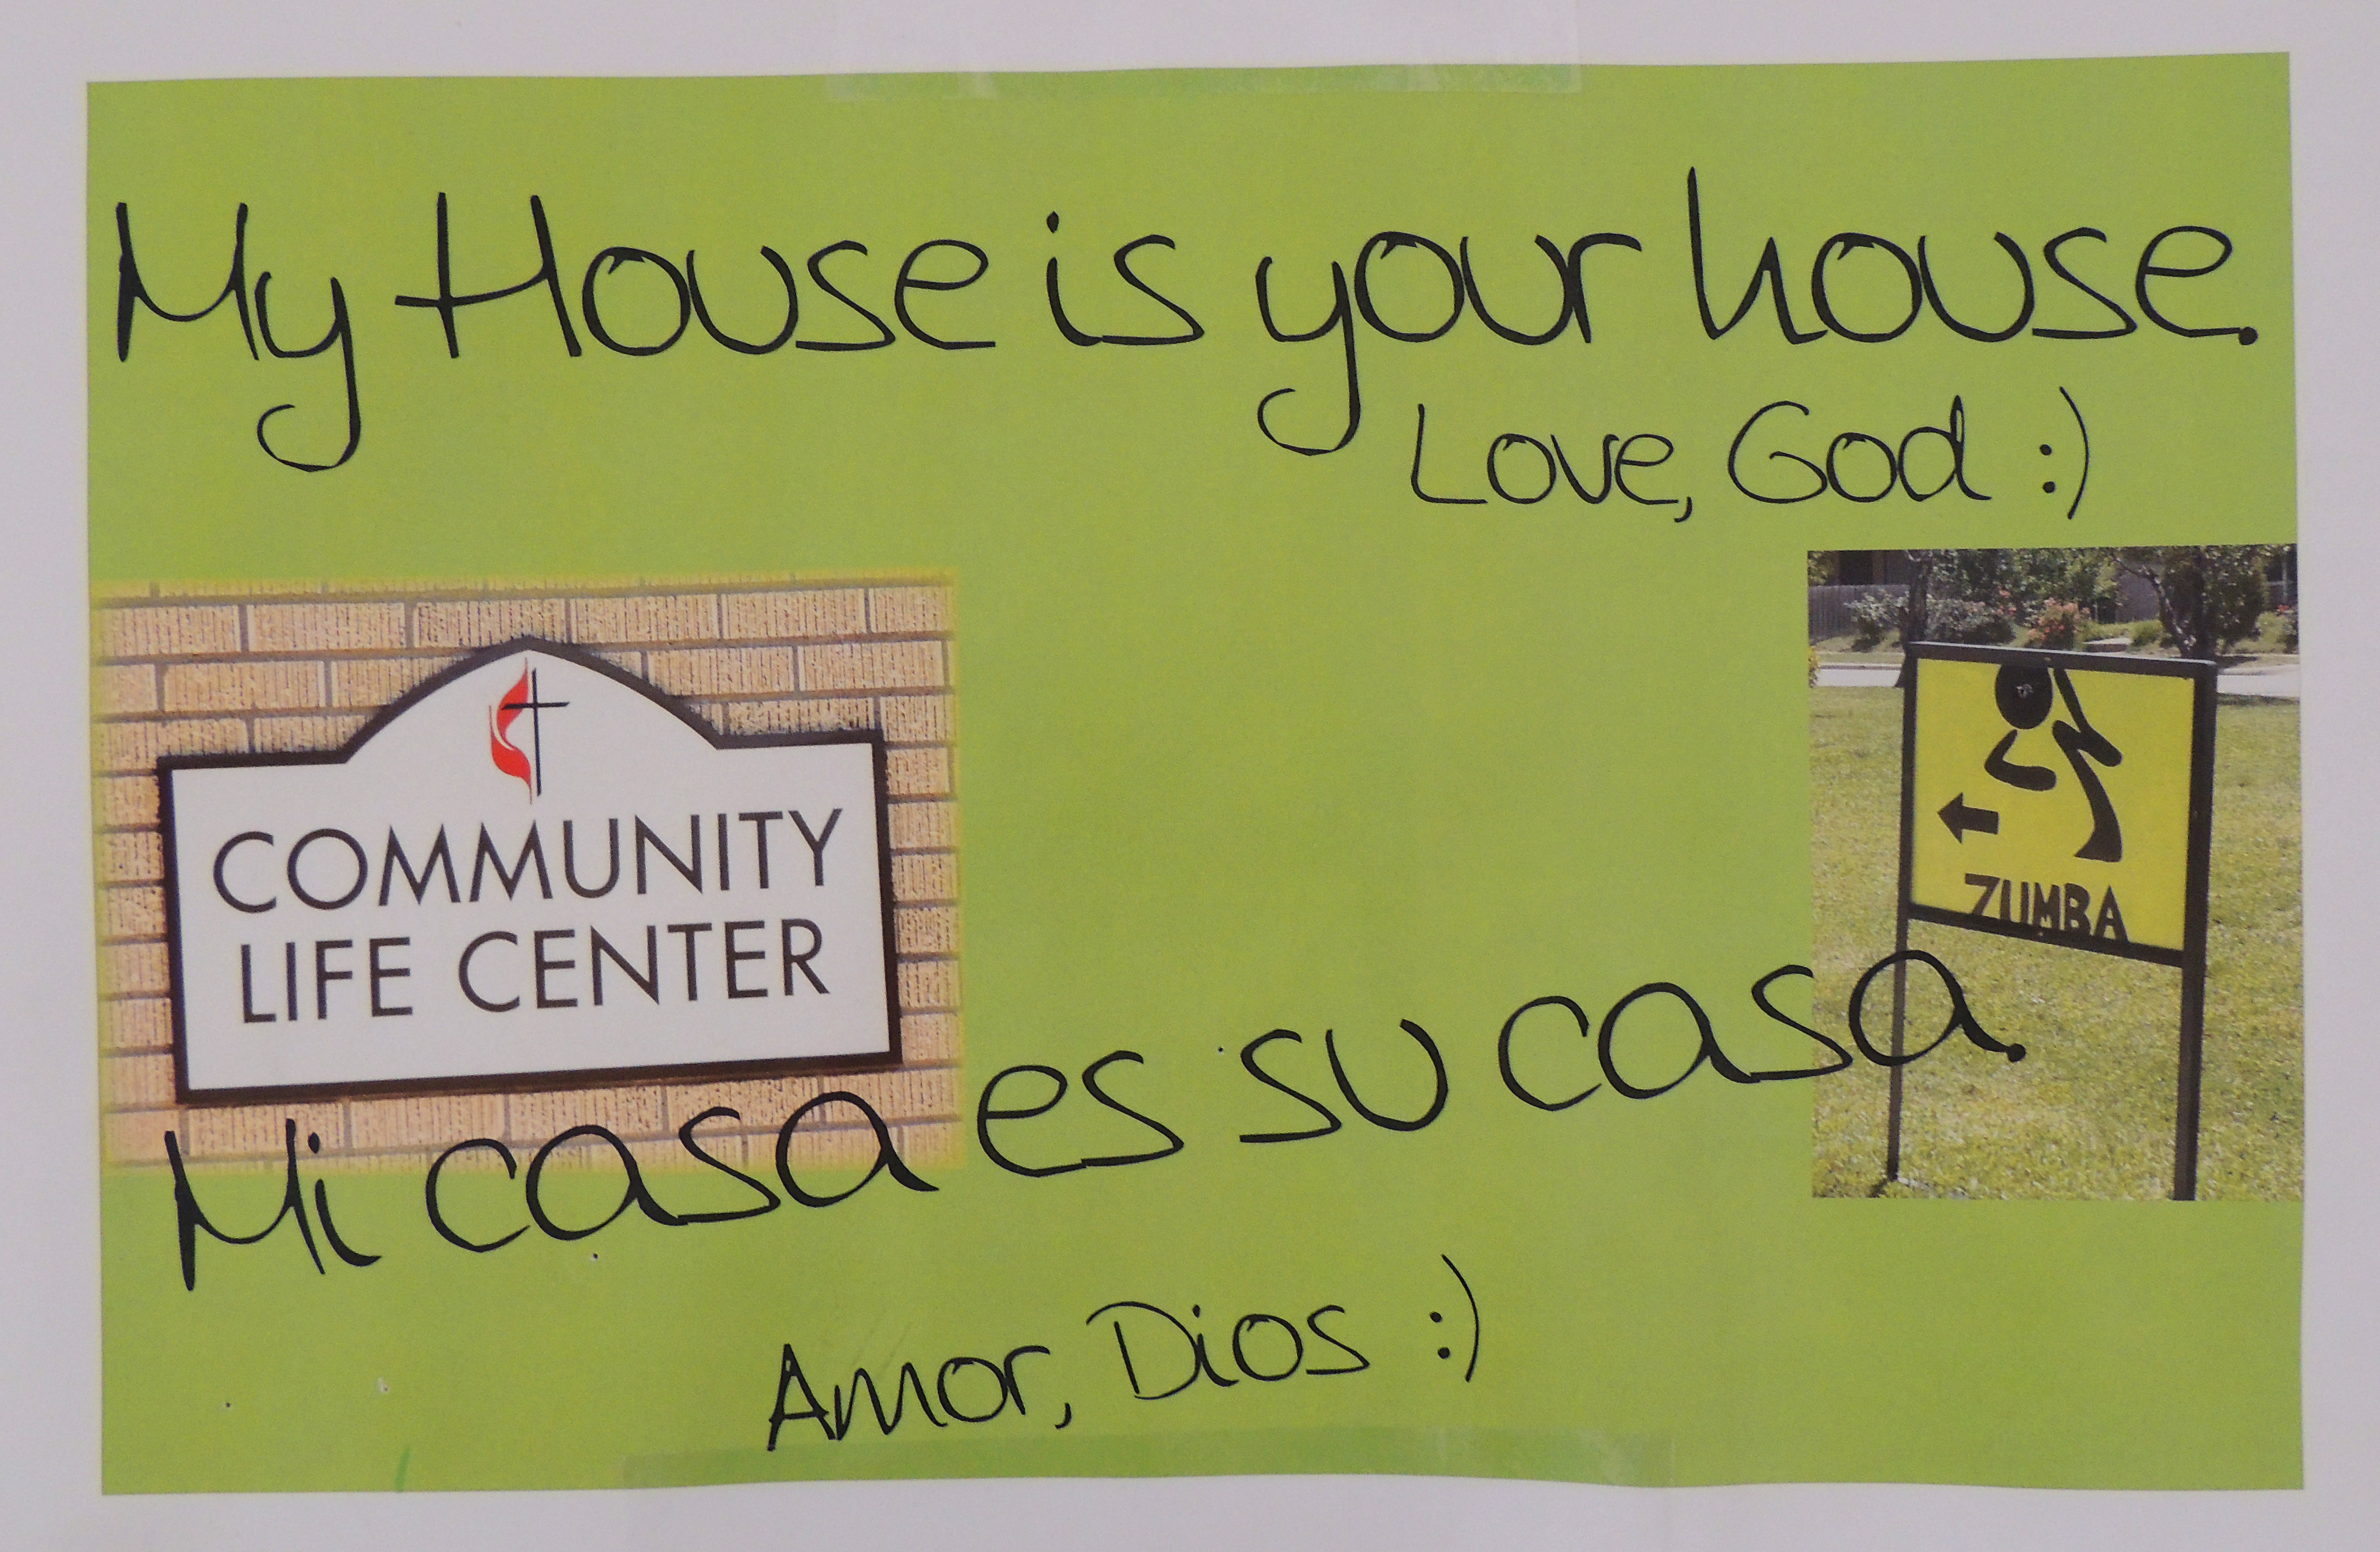 My House is your house.
Love, God :)
COMMUNITY
LIFE CENTER
ZUMBA
Mi casa es su casa.
Amor, Dios :)